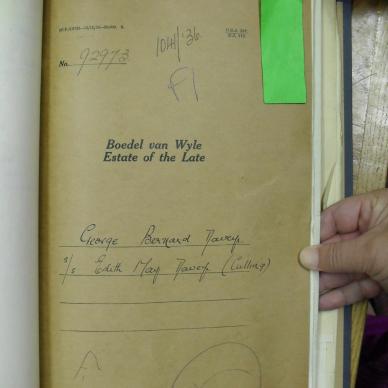 No. 92973
1041/36
Boedel van Wyle
Estate of the Late
George Bernard Davey
s/s Edith May Davey (Culling)
A